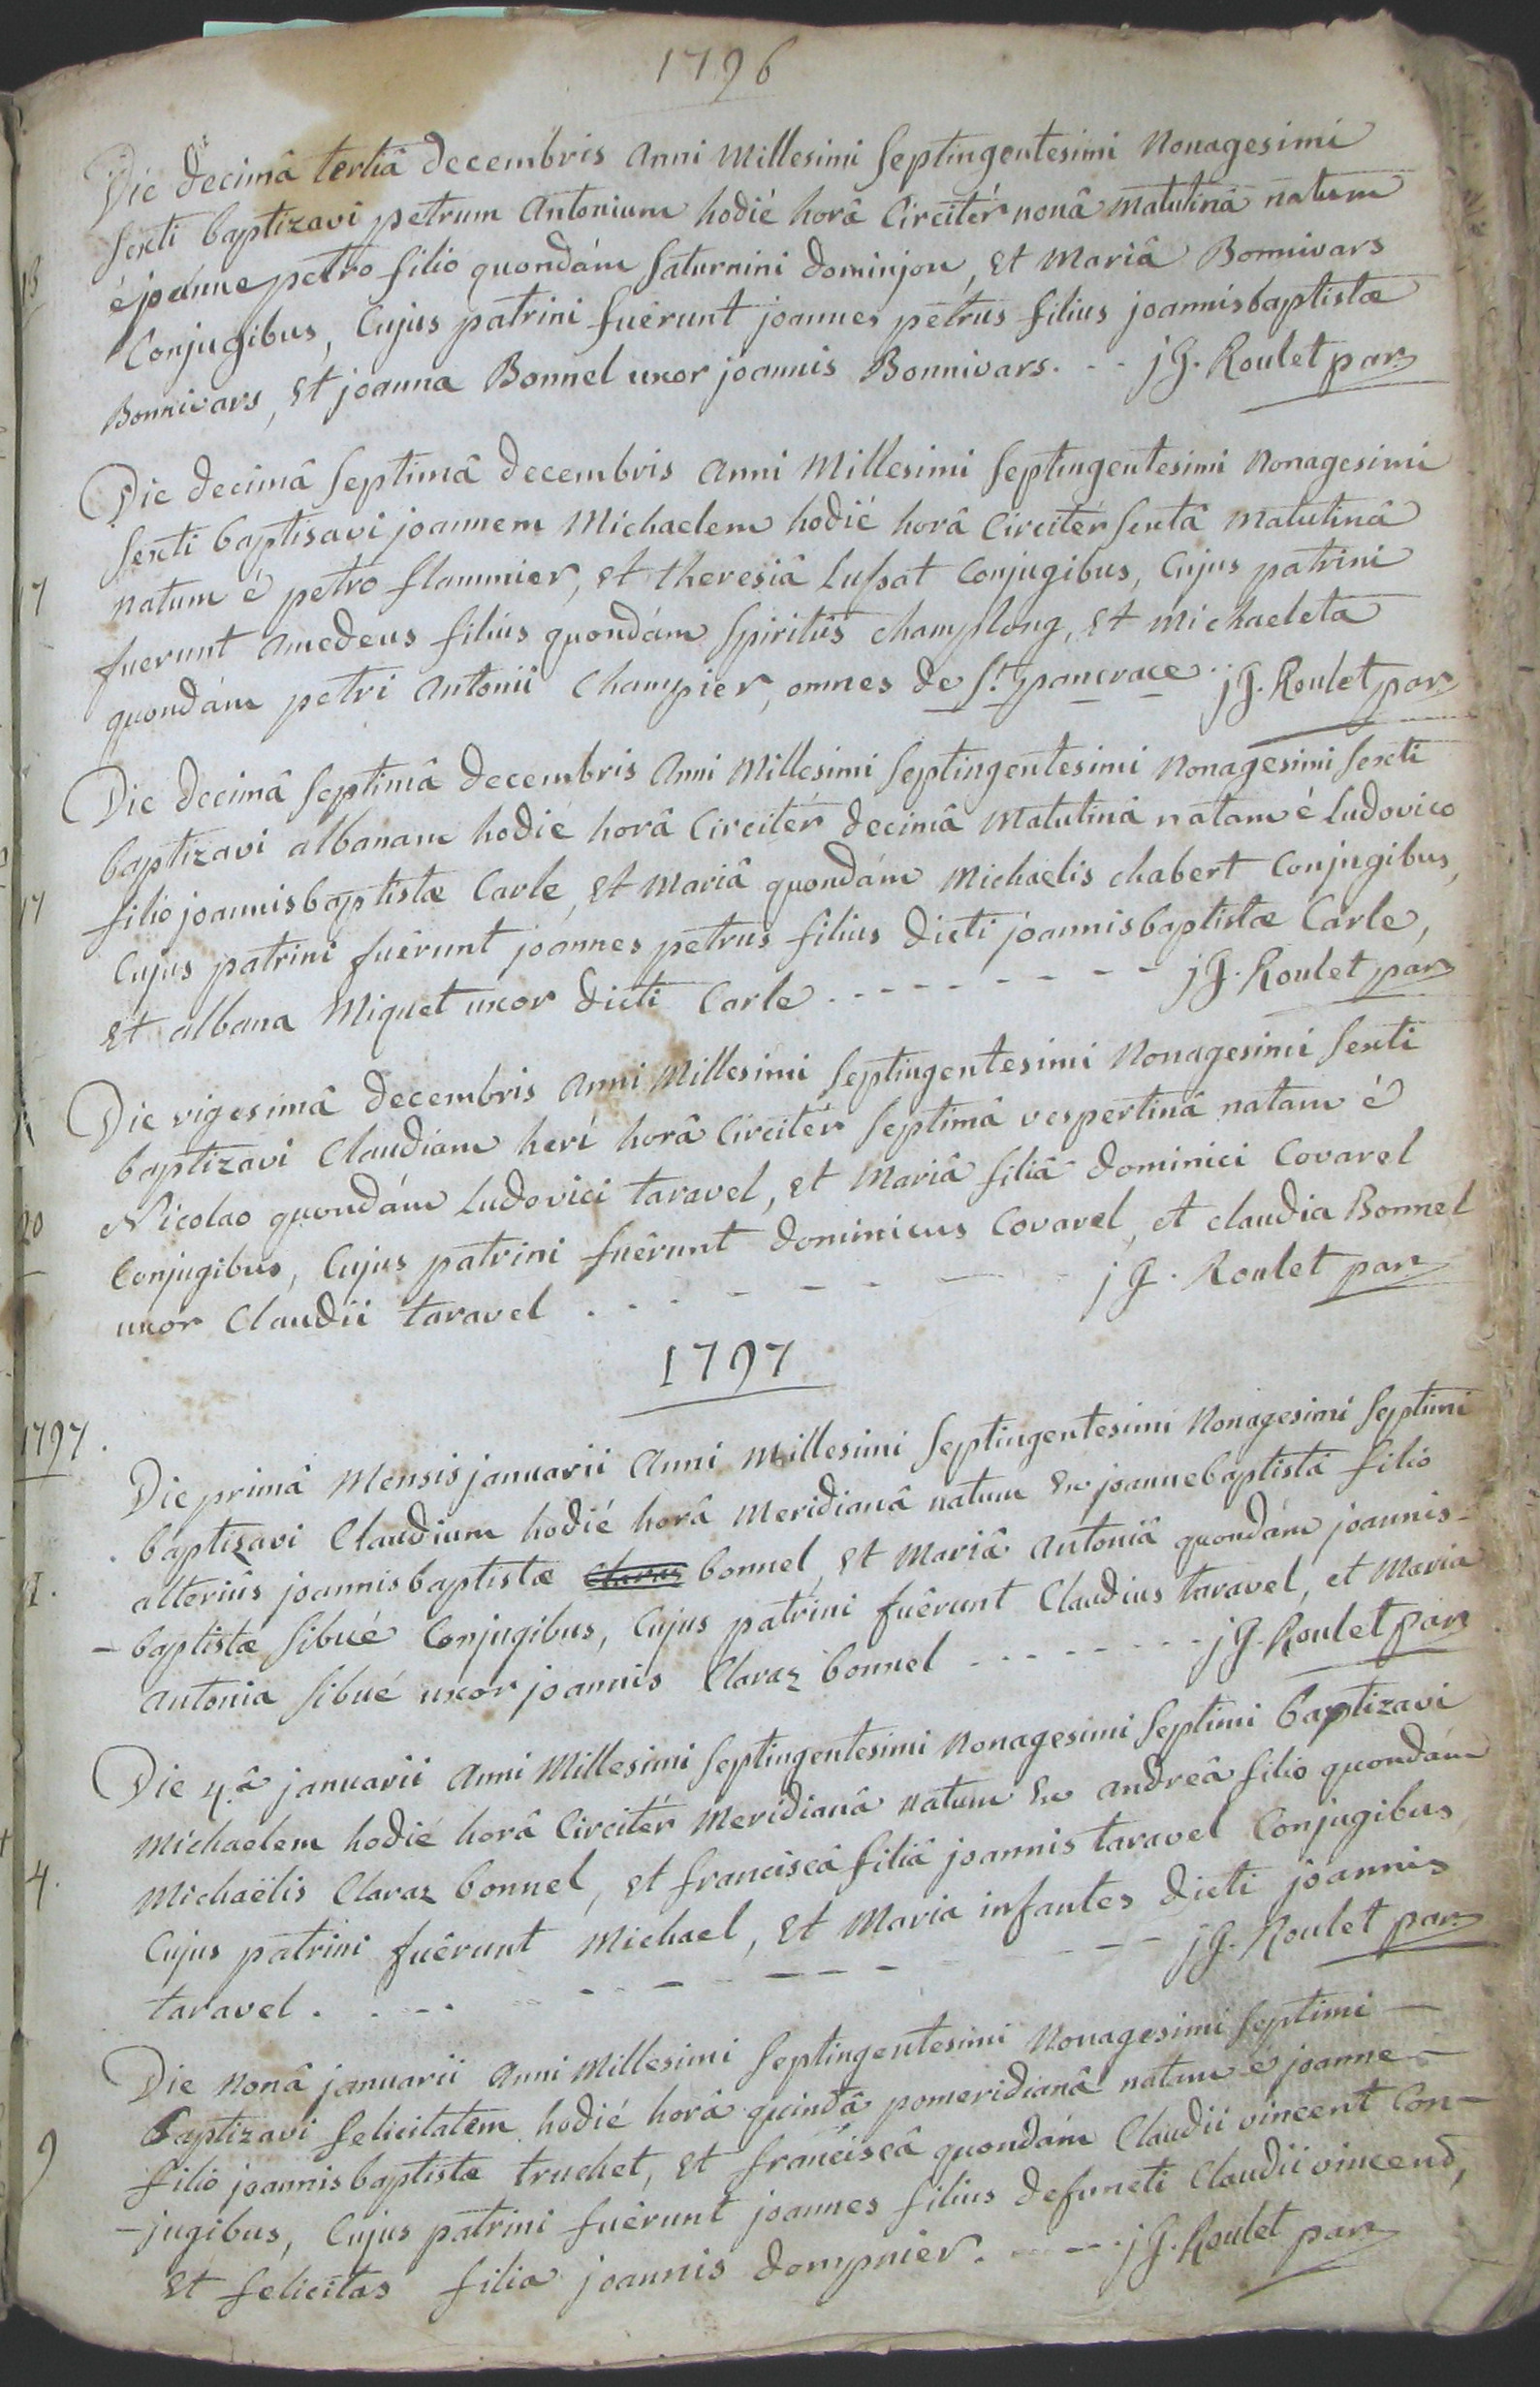 1796
Die decimâ tertiâ decembris anni Millesimi Septingentesimi Nonagesimi
Sexti baptizavi petrum Antonium hodié horâ Circitér nonâ matutinâ natum
é joanne petro filio quondám Saturnini Dominjon, et Mariâ Bonnivars
Conjugibus, Cujus patrini fuêrunt joannes petrus filius joannisbaptistæ
Bonnivars, et joanna Bonnel uxor joannis Bonnivars. - - jG. Roulet par.
13
Die decimâ Septimâ decembris anni Millesimi Septingentesimi Nonagesimi
Sexti baptisavi joannem Michaelem hodié horâ Circitér Sextâ Matutinâ
17 natum é petro flammier, et theresiâ Lussat Conjugibus, Cujus patrini
fuerunt amedeus filius quondám Spiritûs champlong, et Michaeleta
quondám petri Antonii Champier, omnes de St. pancrace. jG. Roulet par.
Die decimâ Septimâ decembris Anni Millesimi Septingentesimi Nonagesimi Sexti
baptizavi albanam hodié horâ Circitér decimâ Matutinâ natam é Ludovico
17 filio joannisbaptistæ Carle, et Mariâ quondám Michaelis chabert Conjugibus,
Cujus patrini fuêrunt joannes petrus filius dicti joannisbaptistæ Carle,
et albana Miquet uxor dicti Carle - - - - - - - - - jG. Roulet par.
Die vigesimâ decembris anni Millesimi Septingentesimi Nonagesimi Sexti
baptizavi Claudiam herí horâ Circitér Septimâ vespertinâ natam é
20 Nicolao quondám Ludovici taravel, et Mariâ filiâ dominici Covarel
Conjugibus, Cujus patrini fuêrunt dominicus Covarel, et claudia Bonnel
uxor Claudii taravel . - - - - - - jG. Roulet par.
1797
1797.
Die primâ Mensis januarii Anni Millesimi Septingentesimi Nonagesimi Septimi
baptizavi Claudium hodié horâ Meridianâ natum Ex joannebaptistâ filio
1. alteriûs joannisbaptistæ Claraz bonnel, et Mariâ Antoniâ quondám joannis-
-baptistæ Sibué Conjugibus, Cujus patrini fuêrunt Claudius taravel, et Maria
Antonia Sibué uxor joannis Claraz bonnel - - - - - - - jG. Roulet par.
Die 4.â januarii Anni Millesimi Septingentesimi Nonagesimi Septimi baptizavi
Michaelem hodié horâ Circitér Meridianâ natum Ex andreâ filio quondám
4. Michaëlis Claraz bonnel, et franciscâ filiâ joannis taravel Conjugibus
Cujus patrini fuêrunt Michael, et Maria infantes dicti joannis
taravel. - - - - - - - - - jG. Roulet par.
Die Nonâ januarii Anni Millesimi Septingentesimi Nonagesimi Septimi -
Baptizavi felicitatem hodié horâ quintâ pomeridianâ natam é joanne -
9 filio joannisbaptistæ truchet, et franciscâ quondám Claudii vincent Con-
-jugibus, Cujus patrini fuêrunt joannes filius defuncti Claudii vincend,
et felicitas filia joannis dompnier. - - - - jG. Roulet par.